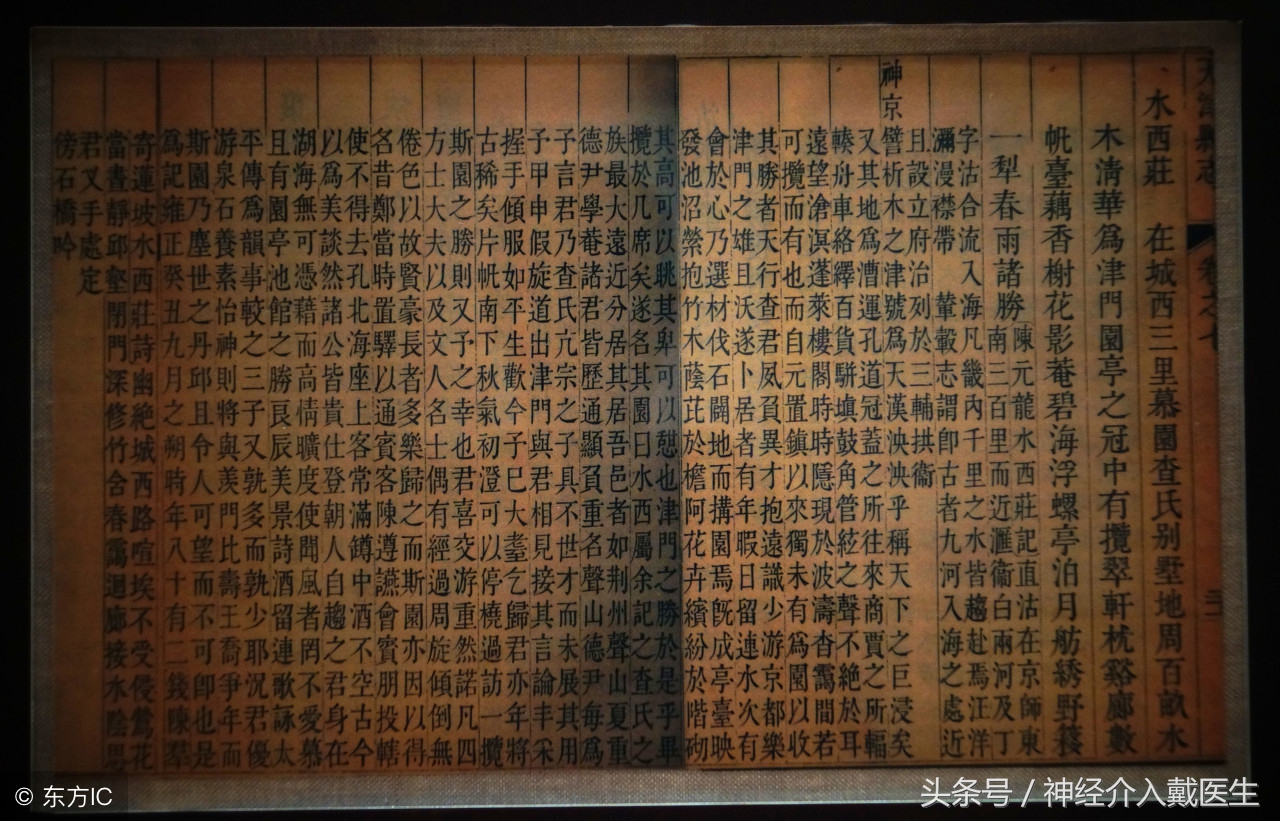 天津縣志 卷之七
水西莊 在城西三里慕園查氏别墅地周百畝水
木清華爲津門園亭之冠中有攬翠軒枕谿廊數
帆臺藕香榭花影菴碧海浮螺亭泊月舫綉野簃
一犁春雨諸勝
陳元龍水西莊記直沽在京師東
南三百里而近滙衞白兩河及丁
字沽合流入海凡畿內千里之水皆趨赴焉汪洋
瀰漫襟帶 輦轂志謂卽古者九河入海之處近
且設立府治列於三輔拱衞
神京譬析木之津號爲天漢泱泱乎稱天下之巨浸矣
又其地爲漕運孔道冠蓋之所往來商賈之所輻
輳舟車絡繹百貨駢塡鼓角管絃之聲不絕於耳
遠望滄溟蓬萊樓閣時時隱現於波濤杳靄間若
可攬而有也而自元置鎮以來獨未有爲園以收
其勝者天行查君夙負異才抱遠識少游京都樂
津門之雄且沃遂卜居者有年暇日留連水次有
會於心乃選材伐石闢地而搆園焉旣成亭臺映
發池沼縈抱竹木蔭芘於檐阿花卉繽紛於階砌
其高可以眺其卑可以憇也津門之勝於是乎畢
攬於几席矣遂名其園曰水西屬余記之查氏之
族最大遠近分居其居吾邑者如荆州聲山夏重
德尹學菴諸君皆歷通顯負重名聲山德尹每爲
子言君乃查氏亢宗之子具不世才而未展其用
子甲申假旋道出津門與君相見接其言論丰采
握手傾服如平生歡今子巳大耋乞歸君亦年將
古稀矣片帆南下秋氣初澄可以停橈過訪一攬
斯園之勝則又予之幸也君喜交游重然諾凡四
方士大夫以及文人名士偶有經過周旋傾倒無
倦色以故賢豪長者多樂歸之而斯園亦因以得
名昔鄭當時置驛以通賓客陳遵讌會賓朋投轄
使不得去孔北海座上客常滿罇中酒不空古今
以爲美談然諸公皆貴仕登朝人自趨之君身在
湖海無可憑藉而高情曠度使聞風者罔不愛慕
且有園亭池館之勝良辰美景詩酒留連歌詠太
平傳爲韻事較之三子又孰多而孰少耶況君優
游泉石養素怡神則將與羨門比壽王喬爭年而
斯園乃塵世之丹邱且令人可望而不可卽也是
爲記雍正癸丑九月之朔時年八十有二錢陳羣
寄蓮坡水西莊詩幽絶城西路喧埃不受侵鶯花
當晝靜邱壑閉門深修竹含春靄迴廊接水陰思
君叉手處定
傍石橋吟
© 东方IC
头条号 / 神经介入戴医生